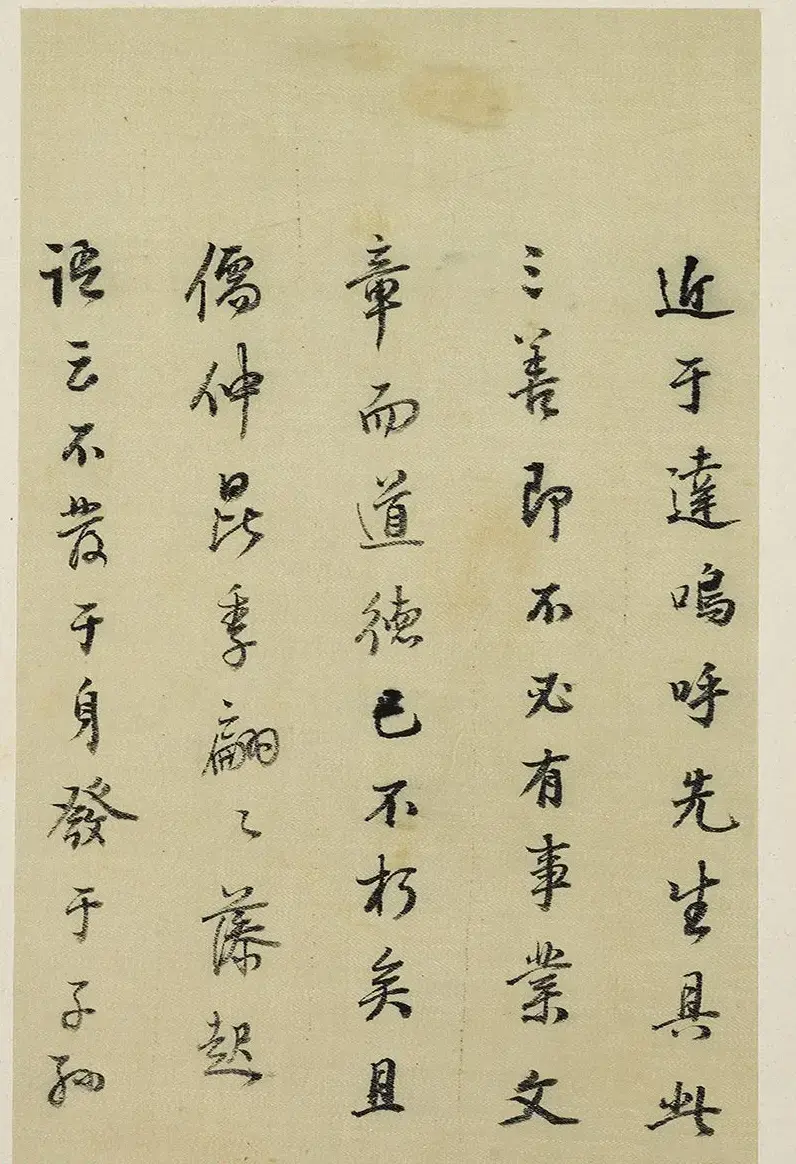 近于達嗚呼先生具此
三善即不必有事業文
章而道德已不朽矣且
儒仲昆季翩〻藻起
語云不發于身發于子孫